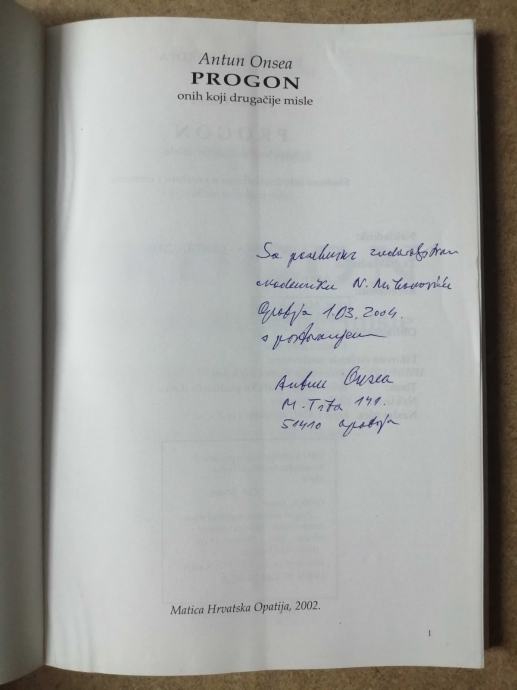 Antun Onsea
PROGON
onih koji drugačije misle
Sa posebnim zadovoljstvom
akademiku N.
Opatija 1.03.2004.
s poštovanjem
Antun Onsea
M. Tita 141.
51410 Opatija
Matica Hrvatska Opatija, 2002.
1